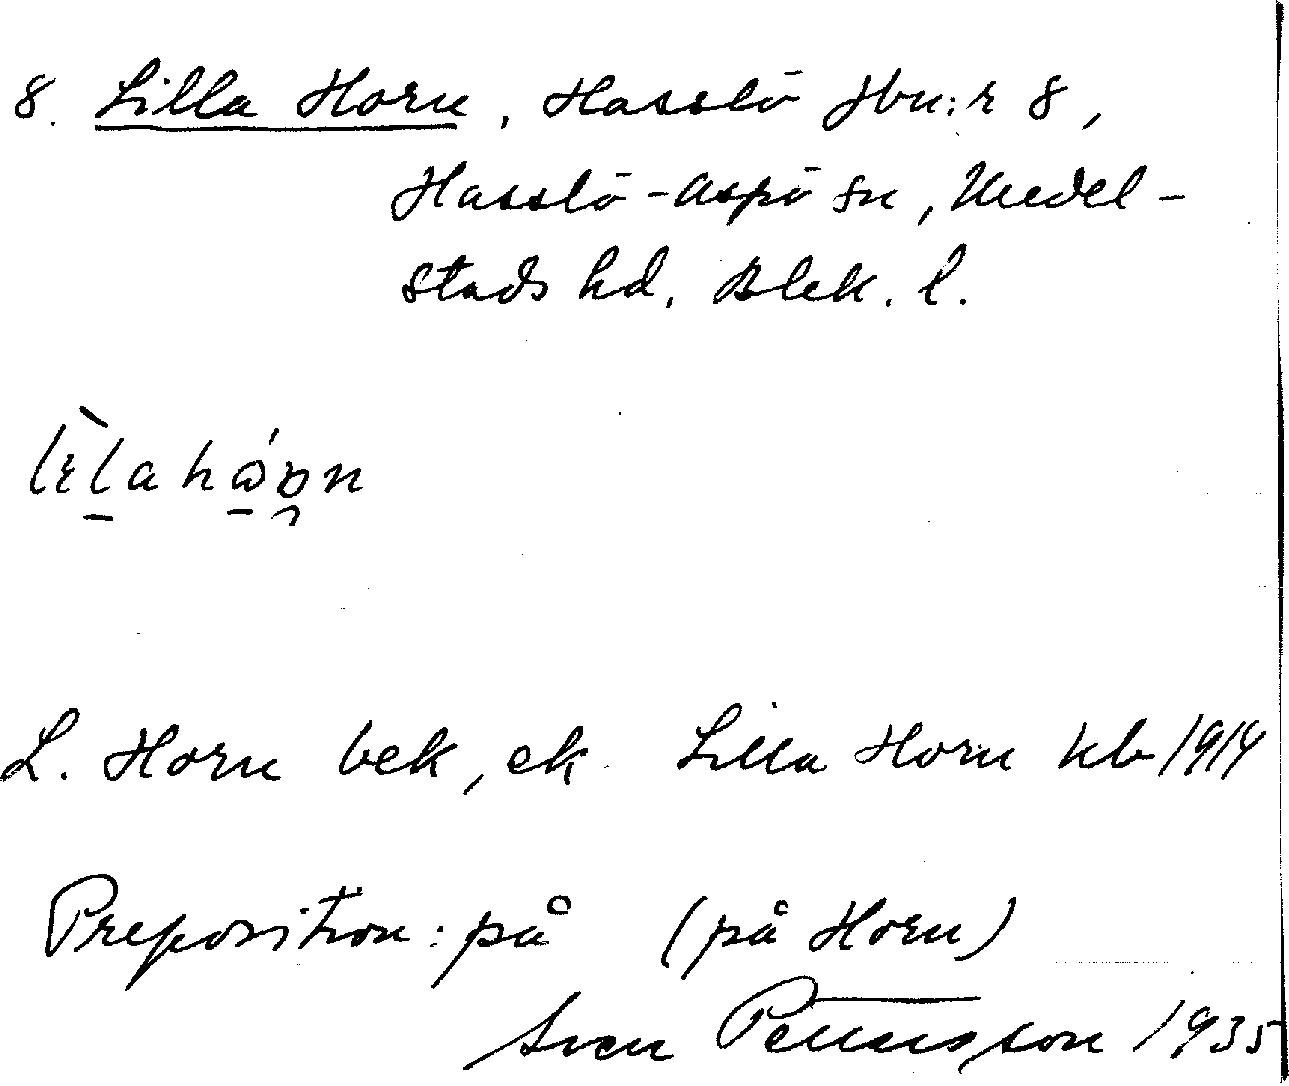 8. Lilla Horn, Hasslö Jbn:r 8,
Hasslö-Aspö sn, Medel-
stads hd, Blek. l.
L. Horn bek, ek Lilla Horn kb 1914
Preposition: på (på Horn)
Sven 1935